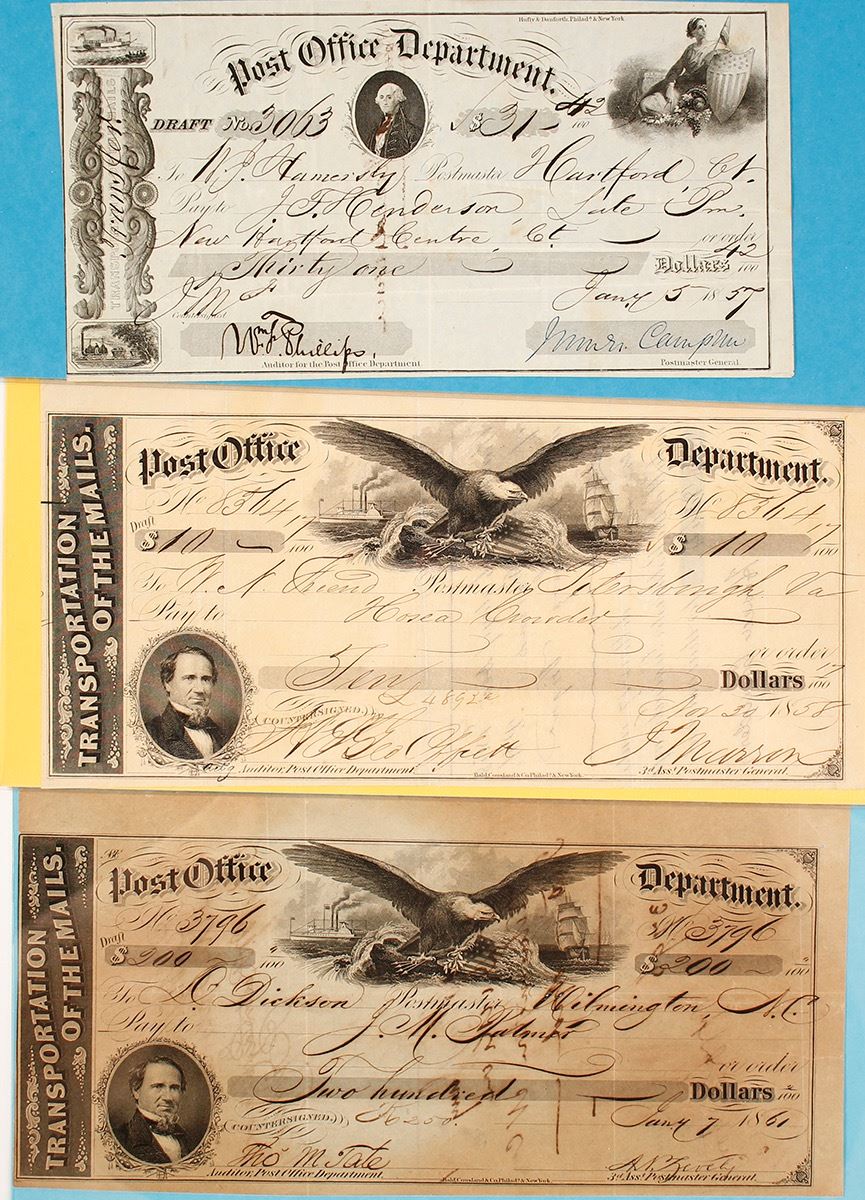 Hufty & Danforth, Philadª & New York
Post Office Department.
DRAFT No. 3063 $31- 42/100
To W. J. Hamersly Postmaster Hartford Ct.
Pay to J. F. Henderson, Late Pm.
New Hartford Centre, Ct. or order
Thirty one Dollars 42/100
Jany 5 1857
Countersigned
Wm. F. Phillips,
Auditor for the Post Office Department
Postmaster General.
TRANSPORTATION
OF THE MAILS.
Post Office Department.
No 8364 No 8364
Draft
$ 10 - 17/100 $ 10 17/100
To W. N. Friend Postmaster Petersburgh Va
Pay to Hosea Crowder
or order
Ten Dollars 17/100
4892
1858
(COUNTERSIGNED.)
Geo Offutt J Marron
Auditor, Post Office Department. 3d Asst Postmaster General.
Bald, Cousland & Co Philadª & New York.
TRANSPORTATION
OF THE MAILS.
Post Office Department.
No 3796 No 3796
Draft
$ 200 /100 $ 200 /100
To D. Dickson Postmaster Wilmington, N.C
Pay to J. M. Palmer
or order
Two hundred Dollars /100
(COUNTERSIGNED.) Jany 7 1861
Thos M Tate A N Zevely
Auditor, Post Office Department. 3d Asst Postmaster General.
Bald, Cousland & Co Philadª & New York.